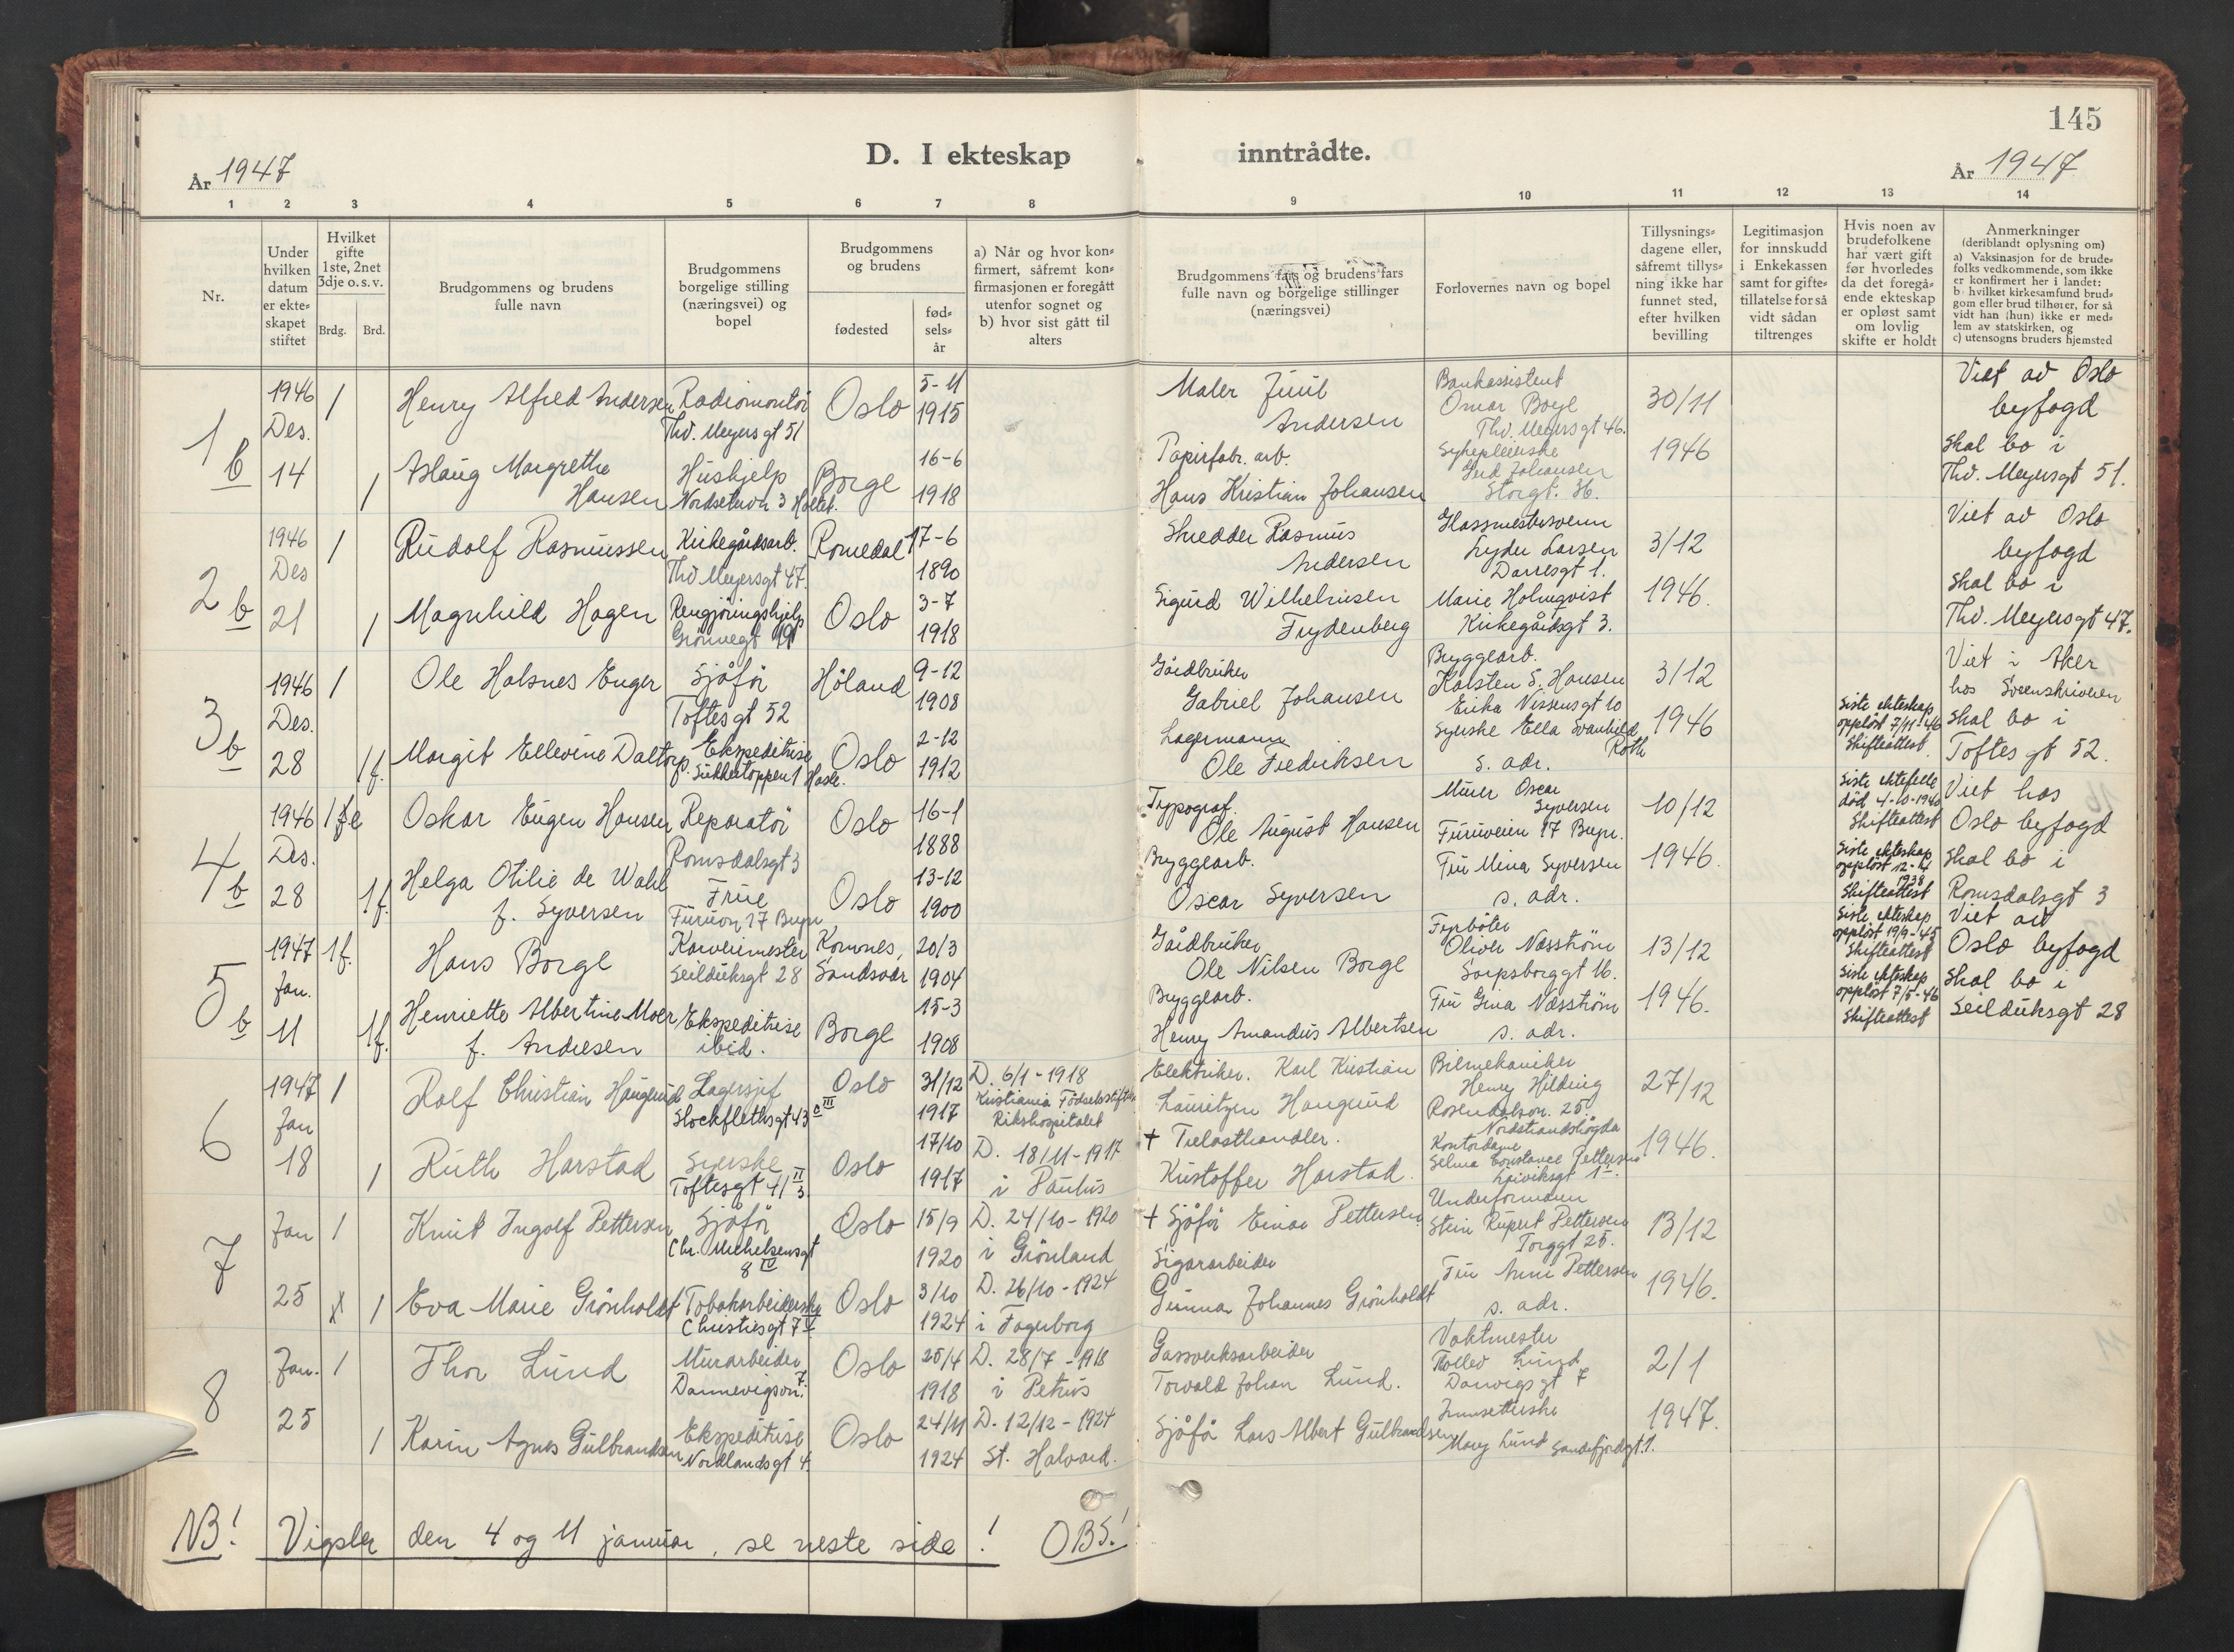 145
D. I ekteskap inntrådte.
År 1947
År 1947
1 2 3 4 5 6 7 8 9 10 11 12 13 14
Nr.
Under hvilken datum er ekte-skapet stiftet
Hvilket gifte 1ste, 2net 3dje o. s. v.
Brdg. Brd.
Brudgommens og brudens fulle navn
Brudgommens borgelige stilling (næringsvei) og bopel
Brudgommens og brudens
fødested
fød-sels-år
a) Når og hvor kon-firmert, såfremt kon-firmasjonen er foregått utenfor sognet og b) hvor sist gått til alters
Brudgommens fars og brudens fars fulle navn og borgelige stillinger (næringsvei)
Forlovernes navn og bopel
Tillysnings-dagene eller, såfremt tillys-ning ikke har funnet sted, efter hvilken bevilling
Legitimasjon for innskudd i Enkekassen samt for gifte-tillatelse for så vidt sådan tiltrenges
Hvis noen av brudefolkene har vært gift før hvorledes da det foregå-ende ekteskap er opløst samt om lovlig skifte er holdt
Anmerkninger (deriblandt oplysning om) a) Vaksinasjon for de brude-folks vedkommende, som ikke er konfirmert her i landet: b) hvilket kirkesamfund brud-gom eller brud tilhører, for så vidt han (hun) ikke er med-lem av statskirken, og c) utensogns bruders hjemsted
1 b
1946 Des. 14
1 Henry Alfred Andersen Radiomontør Thv. Meyers gt 51 Oslo 5-11 1915
Maler Juul Andersen
Bankassistent Omar Boye Thv. Meyersgt 46.
30/11 1946
Viet av Oslo byfogd
1 Aslaug Margrethe Hansen Hushjelp Nordsetervn 3 Holtet. Borge 16-6 1918
Papirfabr. arb. Hans Kristian Johansen
Sykepleierske Johansen Storgt. 36.
Skal bo i Thv. Meyersgt 51.
2 b
1946 Des 21
1 Rudolf Rasmussen Kirkegårdsarb. Thv Meyersgt 47. Romedal 17-6 1890
Skredder Rasmus Andersen
Glassmestersvenn Lyder Larsen Darresgt 1.
3/12 1946.
Viet av Oslo byfogd
1 Magnhild Hagen Rengjøringshjelp Grønnegt 19 Oslo 3-7 1918
Sigurd Wilhelmsen Frydenberg
Marie Holmqvist Kirkegårdsgt 3.
Skal bo i Thv. Meyersgt 47.
3 b
1946 Des. 28
1 Ole Halsnes Enger Sjåfør Toftesgt 52 Høland 9-12 1908
Gårdbruker Gabriel Johansen
Bryggearb. Karsten S. Hansen Erika Nissensgt 10
3/12 1946
Viet i Aker hos Sorenskriveren
1 f. Margit Ellevine Daltorp Ekspeditrise f. Sukkertoppen 1 Hasle. Oslo 2-12 1912
Lagermann Ole Fredriksen
Syerske Ella Svanhild Roth s. adr.
Siste ekteskap oppløst 7/11-46 Skifteattest
skal bo i Toftes gt 52.
4 b
1946 Des. 28
1 fe Oskar Eugen Hansen Reparatør Romsdalsgt 3 Oslo 16-1 1888
Typograf. Ole August Hansen
Murer Oscar Syversen Furuveien 17 Bryn.
10/12 1946.
Siste ektefelle død 4-10-1940 Skifteattest
Viet hos Oslo byfogd
1 f. Helga Otilie de Wahl f. Syversen Frue Furuvn 17 Bryn Oslo 13-12 1900
Bryggearb. Oscar Syversen
Fru Mina Syversen s. adr.
Siste ekteskap oppløst 12-14 1938 Skifteattest
skal bo i Romsdalsgt 3
5 b
1947 Jan. 11
1 f. Hans Borge Karverimester Seilduksgt 28 Komnes, Sandsvær 20/3 1904
Gårdbruker Ole Nilsen Borge
Fyrbøter Oliver Næsstrøm Sarpsborggt 16.
13/12 1946.
Siste ekteskap oppløst 19/9-45 Skifteattest
Viet av Oslo byfogd
1 f. Henriette Albertine Moer f. Andresen Ekspeditrise ibid. Borge 15-3 1908
Bryggearb. Henry Amandus Albertsen
Fru Gina Næsstrøm s. adr.
Siste ekteskap oppløst 7/5-46 Skifteattest
Skal bo i Seilduksgt 28
6
1947 Jan 18
1 Rolf Christian Haugerud Lagersjef Stockflethsgt 43 c III Oslo 31/12 1917
D. 6/1-1918 Kristiania Fødselsstiftelse Rikshospitalet
Elektriker. Karl Kristian Lauritzen Haugerud
Bilmekaniker Henry Hilding Rosendalsvn. 25. Nordstrandshøgda
27/12 1946.
1 Ruth Harstad Syerske Toftesgt 41 II 3. Oslo 17/10 1917
D. 18/11-1917 i Paulus
+ Trelasthandler. Kristoffer Harstad.
Kontordame Selma Constance Pettersen
7
Jan 25
1 Knut Ingolf Pettersen Sjåfør Chr. Michelsensgt 8 IV Oslo 15/9 1920
D. 24/10-1920 i Grønland
+ Sjåfør Einar Pettersen
Underformann Stein Rupert Pettersen Torggt 25.
13/12 1946.
x 1 Eva Marie Grønholdt Tobakarbeiderske Christiesgt 7 Oslo 3/10 1924
D. 26/10-1924 i Fagerborg
Sigararbeider Gunnar Johannes Grönholdt
Fru Anni Pettersen s. adr.
8
Jan. 25
1 Thor Lund Murarbeider Dannevigsvn. 7. Oslo 25/4 1918
D. 28/7-1918 i Petrus
Gassverksarbeider Torvald Johan Lund.
Vaktmester Tollev Lund Danvigs gt 7
2/1 1947.
1 Karin Agnes Gulbrandsen Ekspeditrise Nordlandsgt 4. Oslo 24/11 1924
D. 12/12-1924 St. Halvard.
Sjåfør Lars Albert Gulbrandsen
Mary Lund Sandefjordgt. 1.
NB! Vigsler den 4 og 11 januar, se neste side! OBS!